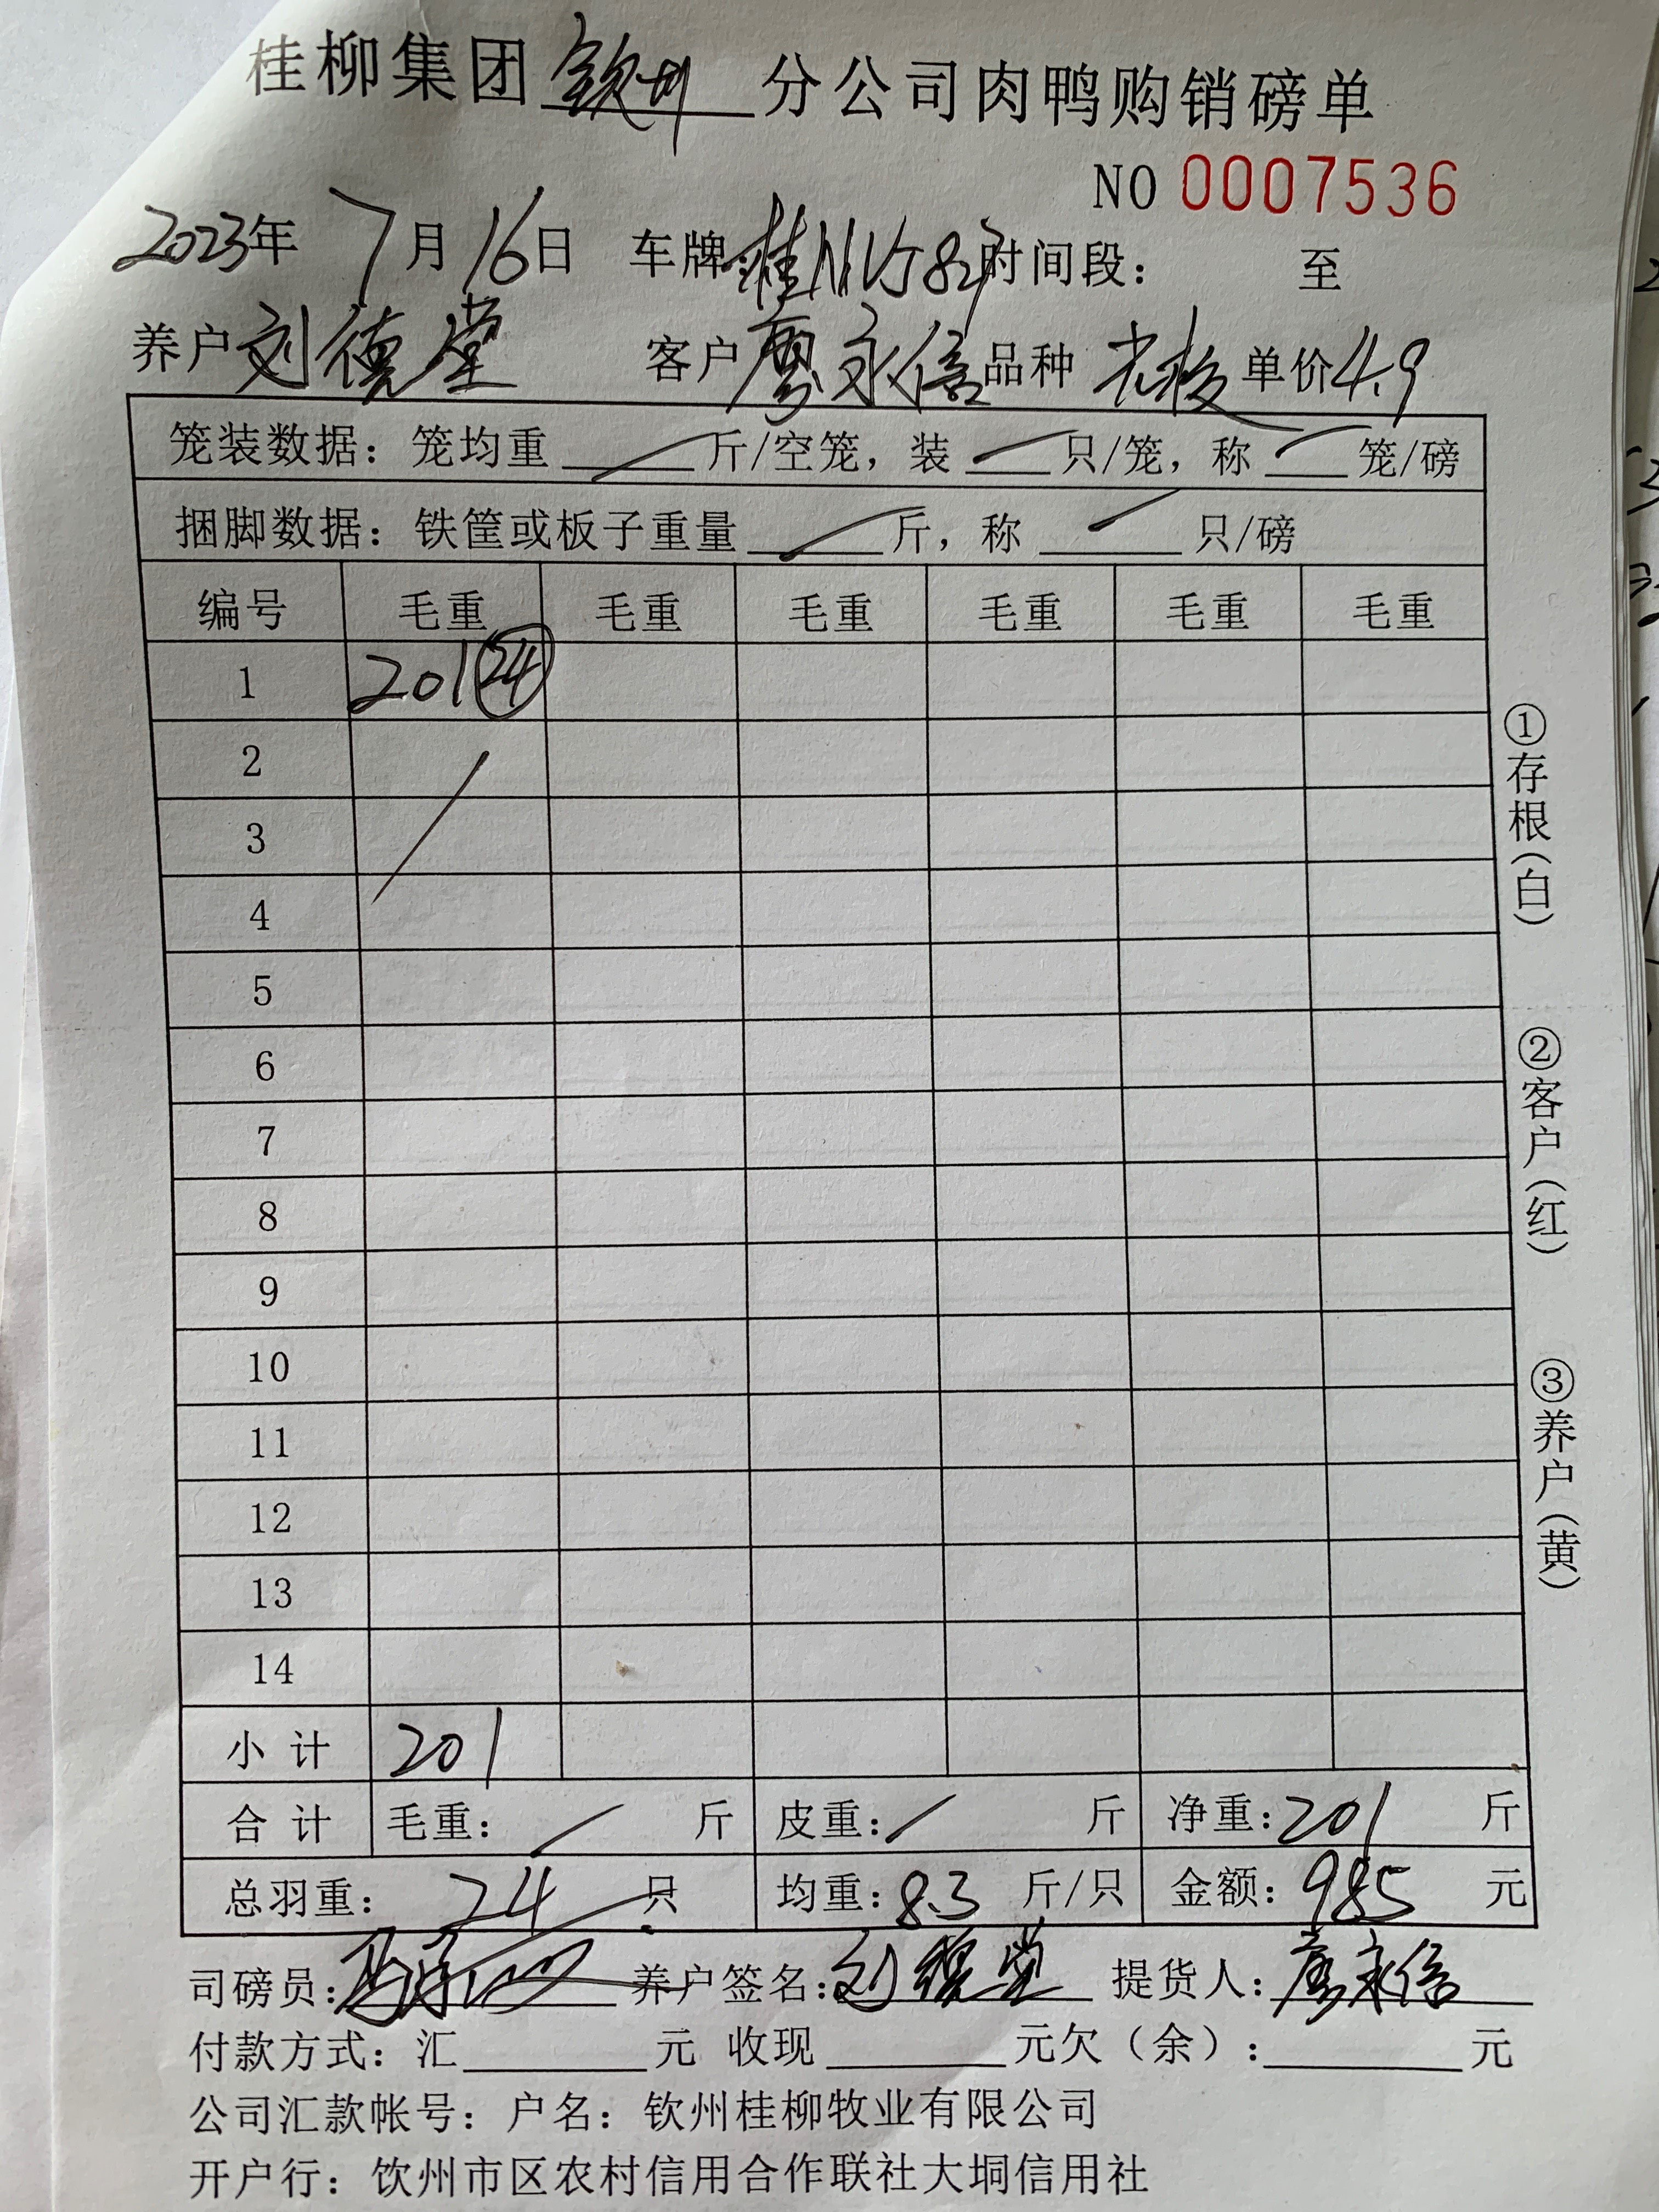 桂柳集团钦州分公司肉鸭购销磅单
NO 0007536
2023年 7月16日 车牌 时间段： 至
养户刘德堂 客户廖永信品种 单价4.9
笼装数据：笼均重 斤/空笼，装 只/笼，称 笼/磅
捆脚数据：铁筐或板子重量 斤，称 只/磅
编号 毛重 毛重 毛重 毛重 毛重 毛重
1 201 24
2
3
4
5
6
7
8
9
10
11
12
13
14
小计 201
合计 毛重： 斤 皮重： 斤 净重：201 斤
总羽重： 24 只 均重：8.3 斤/只 金额：985 元
司磅员： 养户签名：刘德堂 提货人：廖永信
付款方式：汇 元 收现 元欠（余）： 元
公司汇款帐号：户名：钦州桂柳牧业有限公司
开户行：钦州市区农村信用合作联社大垌信用社
①存根（白）
②客户（红）
③养户（黄）